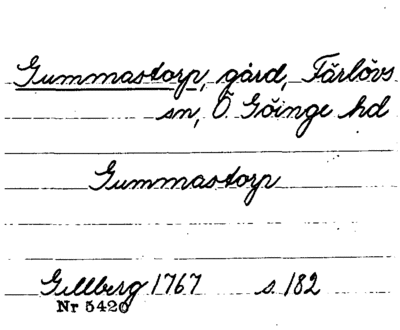 Gummastorp, gård, Färlövs
sn, Ö Göinge hd
Gummastorp
Gillberg 1767 s 182
Nr 5420